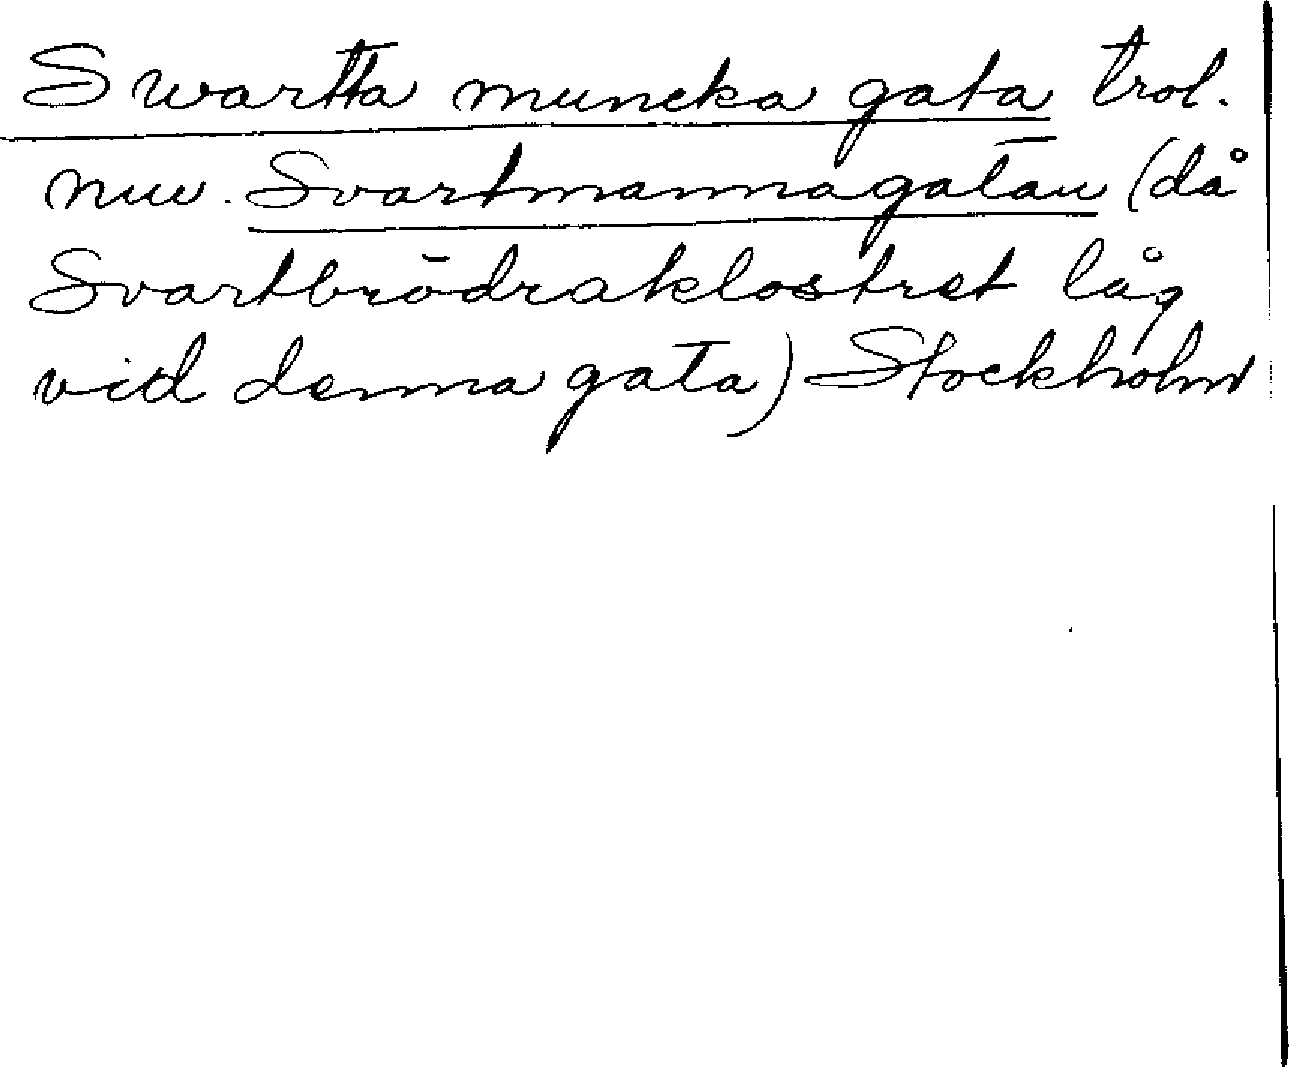 Swartta muncka gata trol.
nuv. Svartmannagatan (då
Svartbrödraklostret låg
vid denna gata) Stockholm